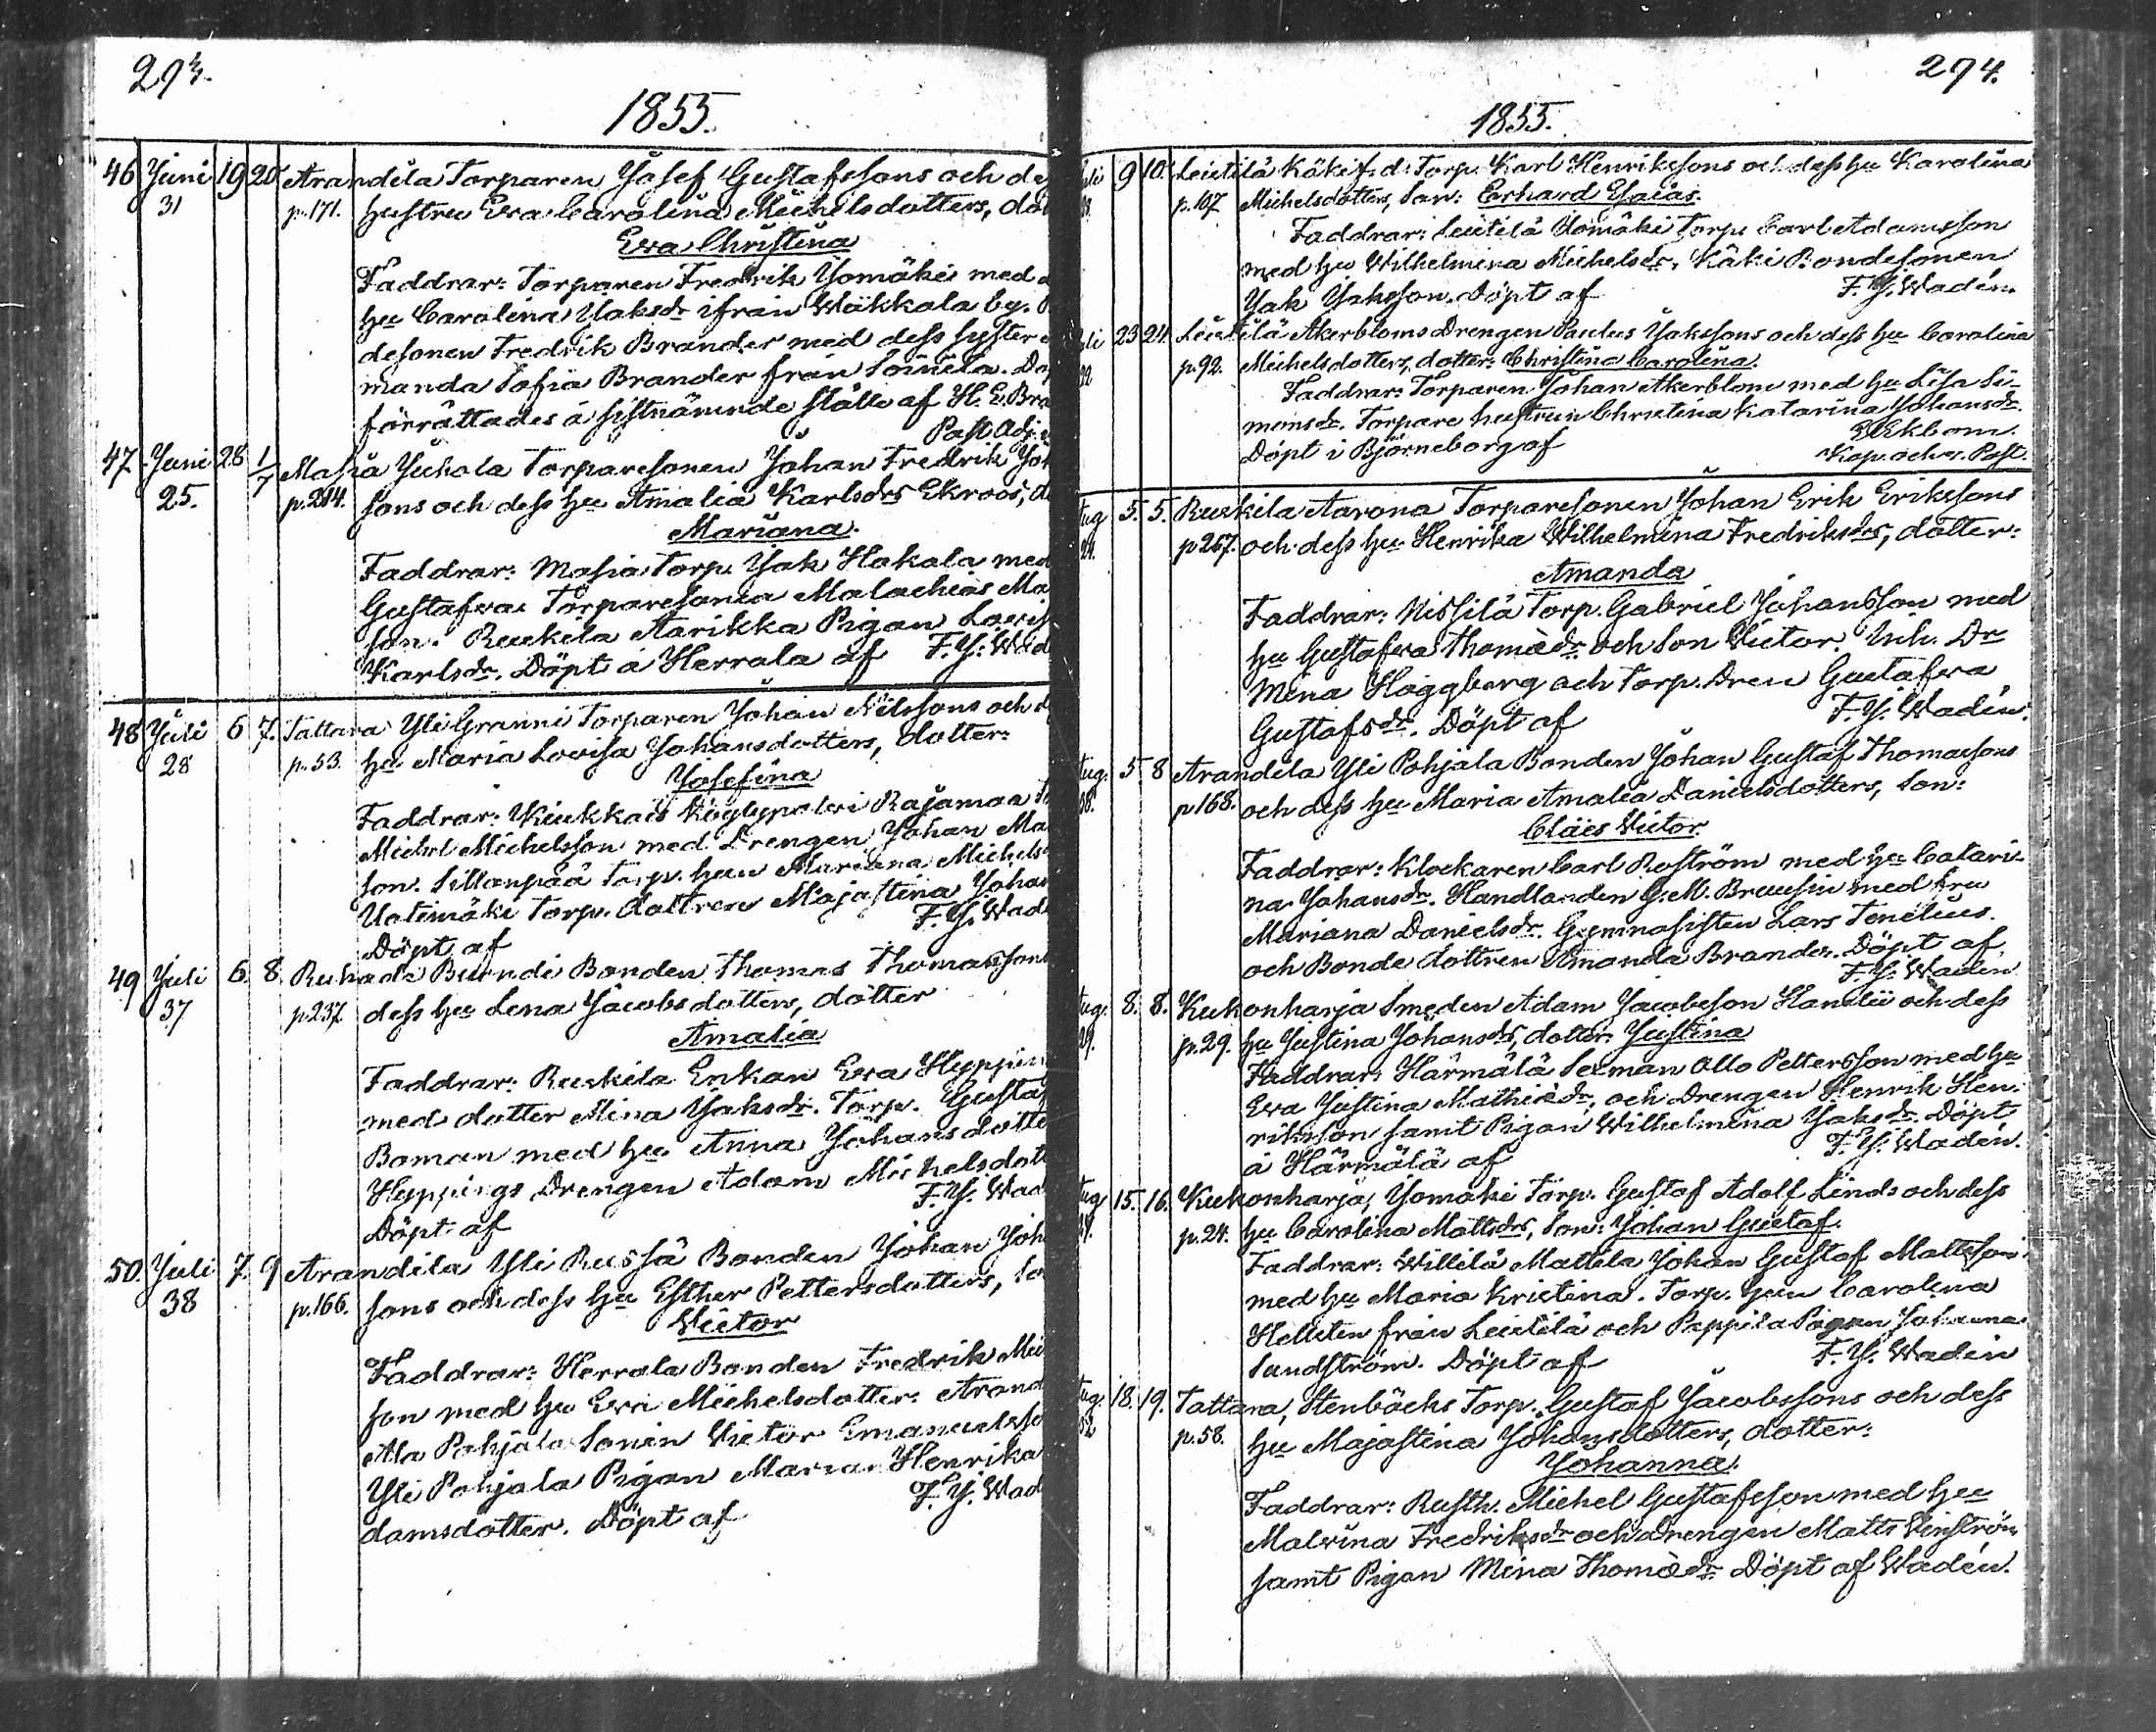 293.
1855.
46 Juni 19 20 Arandila Torparen Josef Gustafssons och de
31 p. 171. hustru Eva Carolina Michelsdotters, dot
Eva Christina
Faddrar: Torparen Fredrik Yomäki med d
hu Carolina Jaksdr ifrån Wäkkala by.
desonen Fredrik Brander med dess syster
manda Sofia Brander från Soinila. Dop
förrättades å sistnämnde ställe af H. E. Bra
Past. Adj.
47. Juni 28 1/7 Masia Juhola Torparesonen Johan Fredrik Joh
25. p. 214. sons och dess hu Amalia Karlsdrs Ekroos, d
Mariana.
Faddrar: Masia Torp. Jak Hakala med
Gustafva Torparesonen Malachias Ma
son. Ruskila Aarikka Pigan Lovis
Karlsdr. Döpt å Herrala af F. J. Wad
48 Juli 6 7. Tattara Yli Granni Torparen Johan Nilssons och d
28 p. 53. hu Maria Lovisa Johansdotters, dotter:
Josefina
Faddrar: Kiukkais Köylypolvi Rajamaa
Michel Michelsson med Drengen Johan Ma
son. Sillanpää Torp. hun Mariana Michels
Uotimäki Torp. dottren Majastina Johan
Döpt af F. J. Wad
49 Juli 6. 8. Ruhade Buondi Bonden Thomas Thomasson
37 p. 237. dess hu Lena Jacobsdotters, dotter
Amalia
Faddrar: Ruskila Enkan Eva Hyppin
med dotter Mina Jaksdr. Torp. Gustaf
Boman med hu Anna Johansdotte
Hyppings Drengen Adam Michelsdott
Döpt af F. J. Wad
50. Juli 7. 9 Arandila Yli Russa Bonden Johan Joh
38 p. 166. sons och dess hu Esther Pettersdotters, so
Victor
Faddrar: Herrala Bonden Fredrik Mi
son med hu Eva Michelsdotter. Arand
Ala Pohjala Sonen Victor Emanuelsso
Yli Pohjala Pigan Maria Henrika
damsdotter. Döpt af F. J. Wad
294.
1855.
9 10. Leistilä Käki f. d. Torp. Karl Henrikssons och dess hu Karolina
p. 107 Michelsdotters, Son: Erhard Esaias.
Faddrar: Leistilä Yomäki Torp. Carl Adamsson
med hu Wilhelmina Michelsdr. Käki Bondesonen
Jak Jaksson. Döpt af F. J. Wadén.
23 24. Leistilä Åkerbloms Drengen Paulus Jakssons och dess hu Carolina
p. 92. Michelsdotters, dotter: Christina Carolina.
Faddrar: Torparen Johan Åkerblom med hu Lisa Si-
monsdr. Torpare hustrun Christina Katarina Johansdr.
Döpt i Björneborg af Ekbom.
Kap. och v. Past.
Aug 5. 5. Ruskila Aarona Torparesonen Johan Erik Erikssons
p. 267. och dess hu Henrika Wilhelmina Fredriksdrs, dotter:
Amanda
Faddrar: Nissilä Torp. Gabriel Johansson med
hu Gustafva Thomædr och son Victor. Inh. Dr
Mina Haggberg och Torp. Dren Gustafva
Gustafsdr. Döpt af F. J. Wadén.
Aug. 5 8 Arandila Yli Pohjala Bonden Johan Gustaf Thomassons
p 168. och dess hu Maria Amalia Danielsdotters, Son:
Claës Victor.
Faddrar: Klockaren Carl Roström med hu Catari-
na Johansdr. Handlanden G. M. Brausin med fru
Mariana Danielsdr. Gymnasisten Lars Tenelius.
och Bonde dottren Amanda Brander. Döpt af
F. J. Wadén
Aug. 8. 8. Kukonharja Smeden Adam Jacobsson Hamlii och dess
p. 29. hu Justina Johansdrs, dotter: Justina
Faddrar: Härmälä Sexman Otto Pettersson med hu
Eva Justina Mathiædr, och Drengen Henrik Hen-
riksson samt Pigan Wilhelmina Jaksdr. Döpt
å Härmälä af F. J. Wadén.
Aug 15. 16. Kukonharja, Yomäki Torp. Gustaf Adolf Linds och dess
p. 24. hu Carolina Mattsdrs, Son: Johan Gustaf.
Faddrar: Willilä Mattila Johan Gustaf Mattsson
med hu Maria Kristina. Torp. hun Carolina
Hellsten från Leistilä och Pappila Pigan Johanna
Sundström. Döpt af F. J. Wadén
Aug. 18. 19. Tattara, Stenbäcks Torp. Gustaf Jacobssons och dess
p. 58. hu Majastina Johansdotters, dotter:
Johanna.
Faddrar: Rusth. Michel Gustafsson med hu
Malvina Fredriksdr och Drengen Matts Winström
samt Pigan Mina Thomædr. Döpt af Wadén.